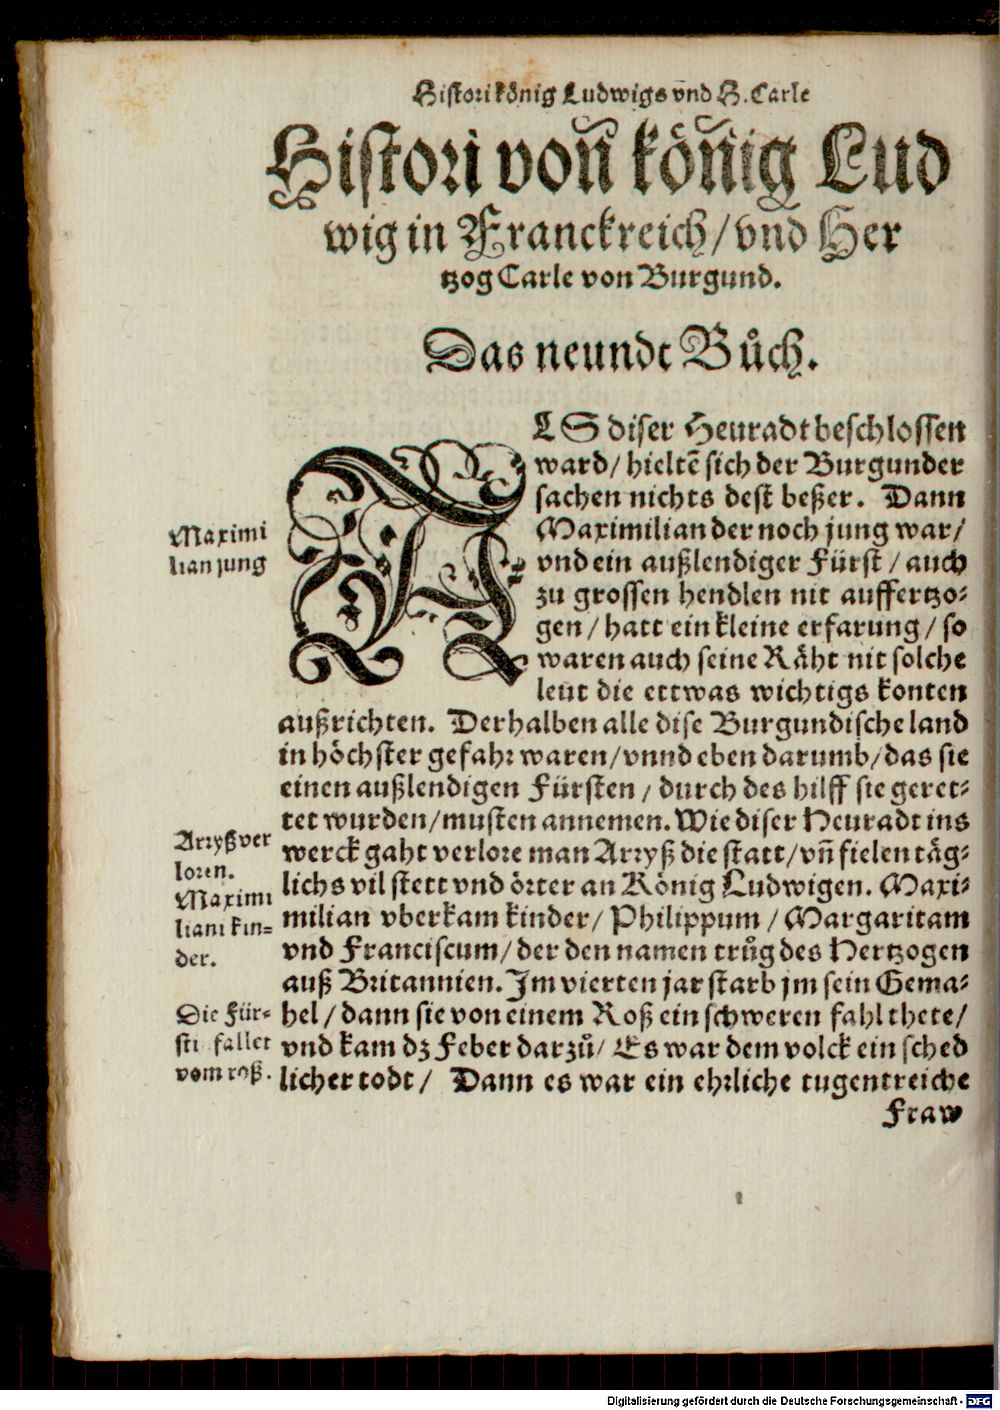 Histori könig Ludwigs vnd H. Carle
Histori von̄ kön̄ig Lud
wig in Franckreich/ vnd Her
tzog Carle von Burgund.
Das neundt Bůch.
ALS diser Heuradt beschlossen
ward/ hieltē sich der Burgunder
sachen nichts dest beßer. Dann
Maximilian der noch jung war/
vnd ein außlendiger Fürst / auch
zu grossen hendlen nit auffertzo-
gen/ hatt ein kleine erfarung/ so
waren auch seine Räht nit solche
leüt die ettwas wichtigs konten
außrichten. Derhalben alle dise Burgundische land
in höchster gefahr waren/ vnnd eben darumb/ das sie
einen außlendigen Fürsten / durch des hilff sie geret-
tet wurden/ musten annemen. Wie diser Heuradt ins
werck gaht verlore man Arryß die statt/ vn̄ fielen täg-
lichs vil stett vnd örter an König Ludwigen. Maxi-
milian vberkam kinder/ Philippum / Margaritam
vnd Franciscum/ der den namen trůg des Hertzogen
auß Britannien. Im vierten jar starb jm sein Gema-
hel/ dann sie von einem Roß ein schweren fahl thete/
vnd kam dz Feber darzů/ Es war dem volck ein sched
licher todt/ Dann es war ein ehrliche tugentreiche
Fraw
Maximi
lian jung
Arryß ver
loren.
Maximi
liani kin-
der.
Die Für-
sti fallet
vom roß.
Digitalisierung gefördert durch die Deutsche Forschungsgemeinschaft - DFG